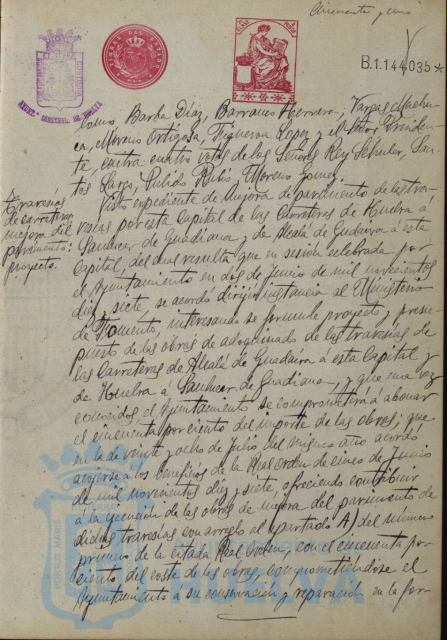 Cincuenta y uno
B.1.144,035*
como Barba Díaz, Barranco Herrera, Vargas Machu-
ca, Moreno Ortigosa, Figueroa Lopez y el Señor Presiden-
te, contra cuatro votos de los Señores Rey
tos Garcés, Pulido Rubio, Moreno Gomez.
Travesías
de carreteras
mejora del
pavimento:
proyecto.
Visto expediente de mejora de pavimento de las tra-
vesias por esta Capital de las Carreteras de Huelva á
Sanlucar de Guadiana y de Alcalá de Guadaira á esta
Capital, del cual resulta que en sesión celebrada por
el Ayuntamiento en dos de Junio de mil novecientos
diez y siete, se acordó dirigir instancia al Ministerio
de Fomento, interesando se formule proyecto y presu-
puesto de las obras de adoquinado de las travesias de
las Carreteras de Alcalá de Guadaira á esta Capital y
de Huelva á Sanlucar de Guadiana, y que una vez
conocidos, el Ayuntamiento se comprometerá á abonar
el cincuenta por ciento del importe de las obras; que
en la de veinte y ocho de Julio del mismo año acordó
acogerse á los beneficios de la Real Orden de cinco de Junio
de mil novecientos diez y siete, ofreciendo contribuir
á la ejecución de las obras de mejora del pavimento de
dichas travesias con arreglo al apartado A) del número
primero de la citada Real Orden, con el cincuenta por
ciento del coste de las obras, comprometiéndose el
Ayuntamiento á su conservación y reparación en la for-
HUELVA